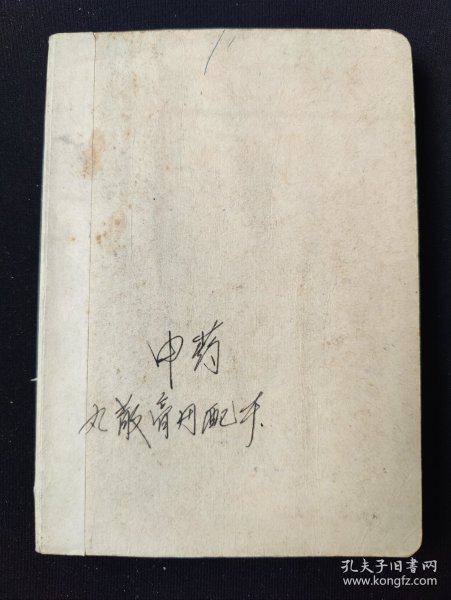 中药
丸散膏丹配本.
孔夫子旧书网
www.kongfz.com